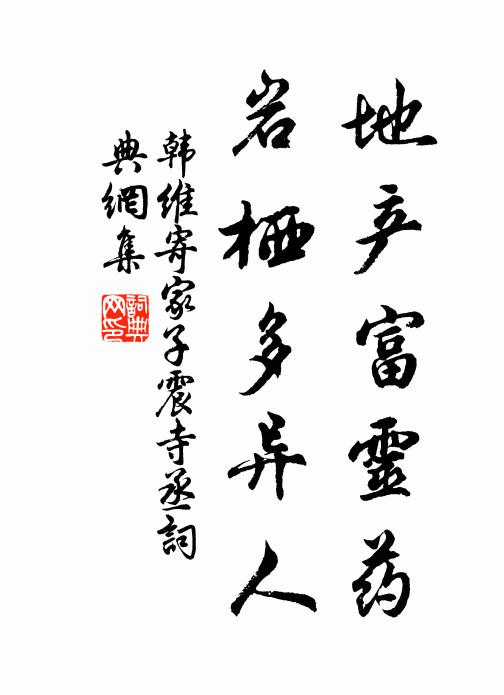 地产富靈药
岩栖多异人
韩维寄家子震寺丞詞
典網集
詞典网印